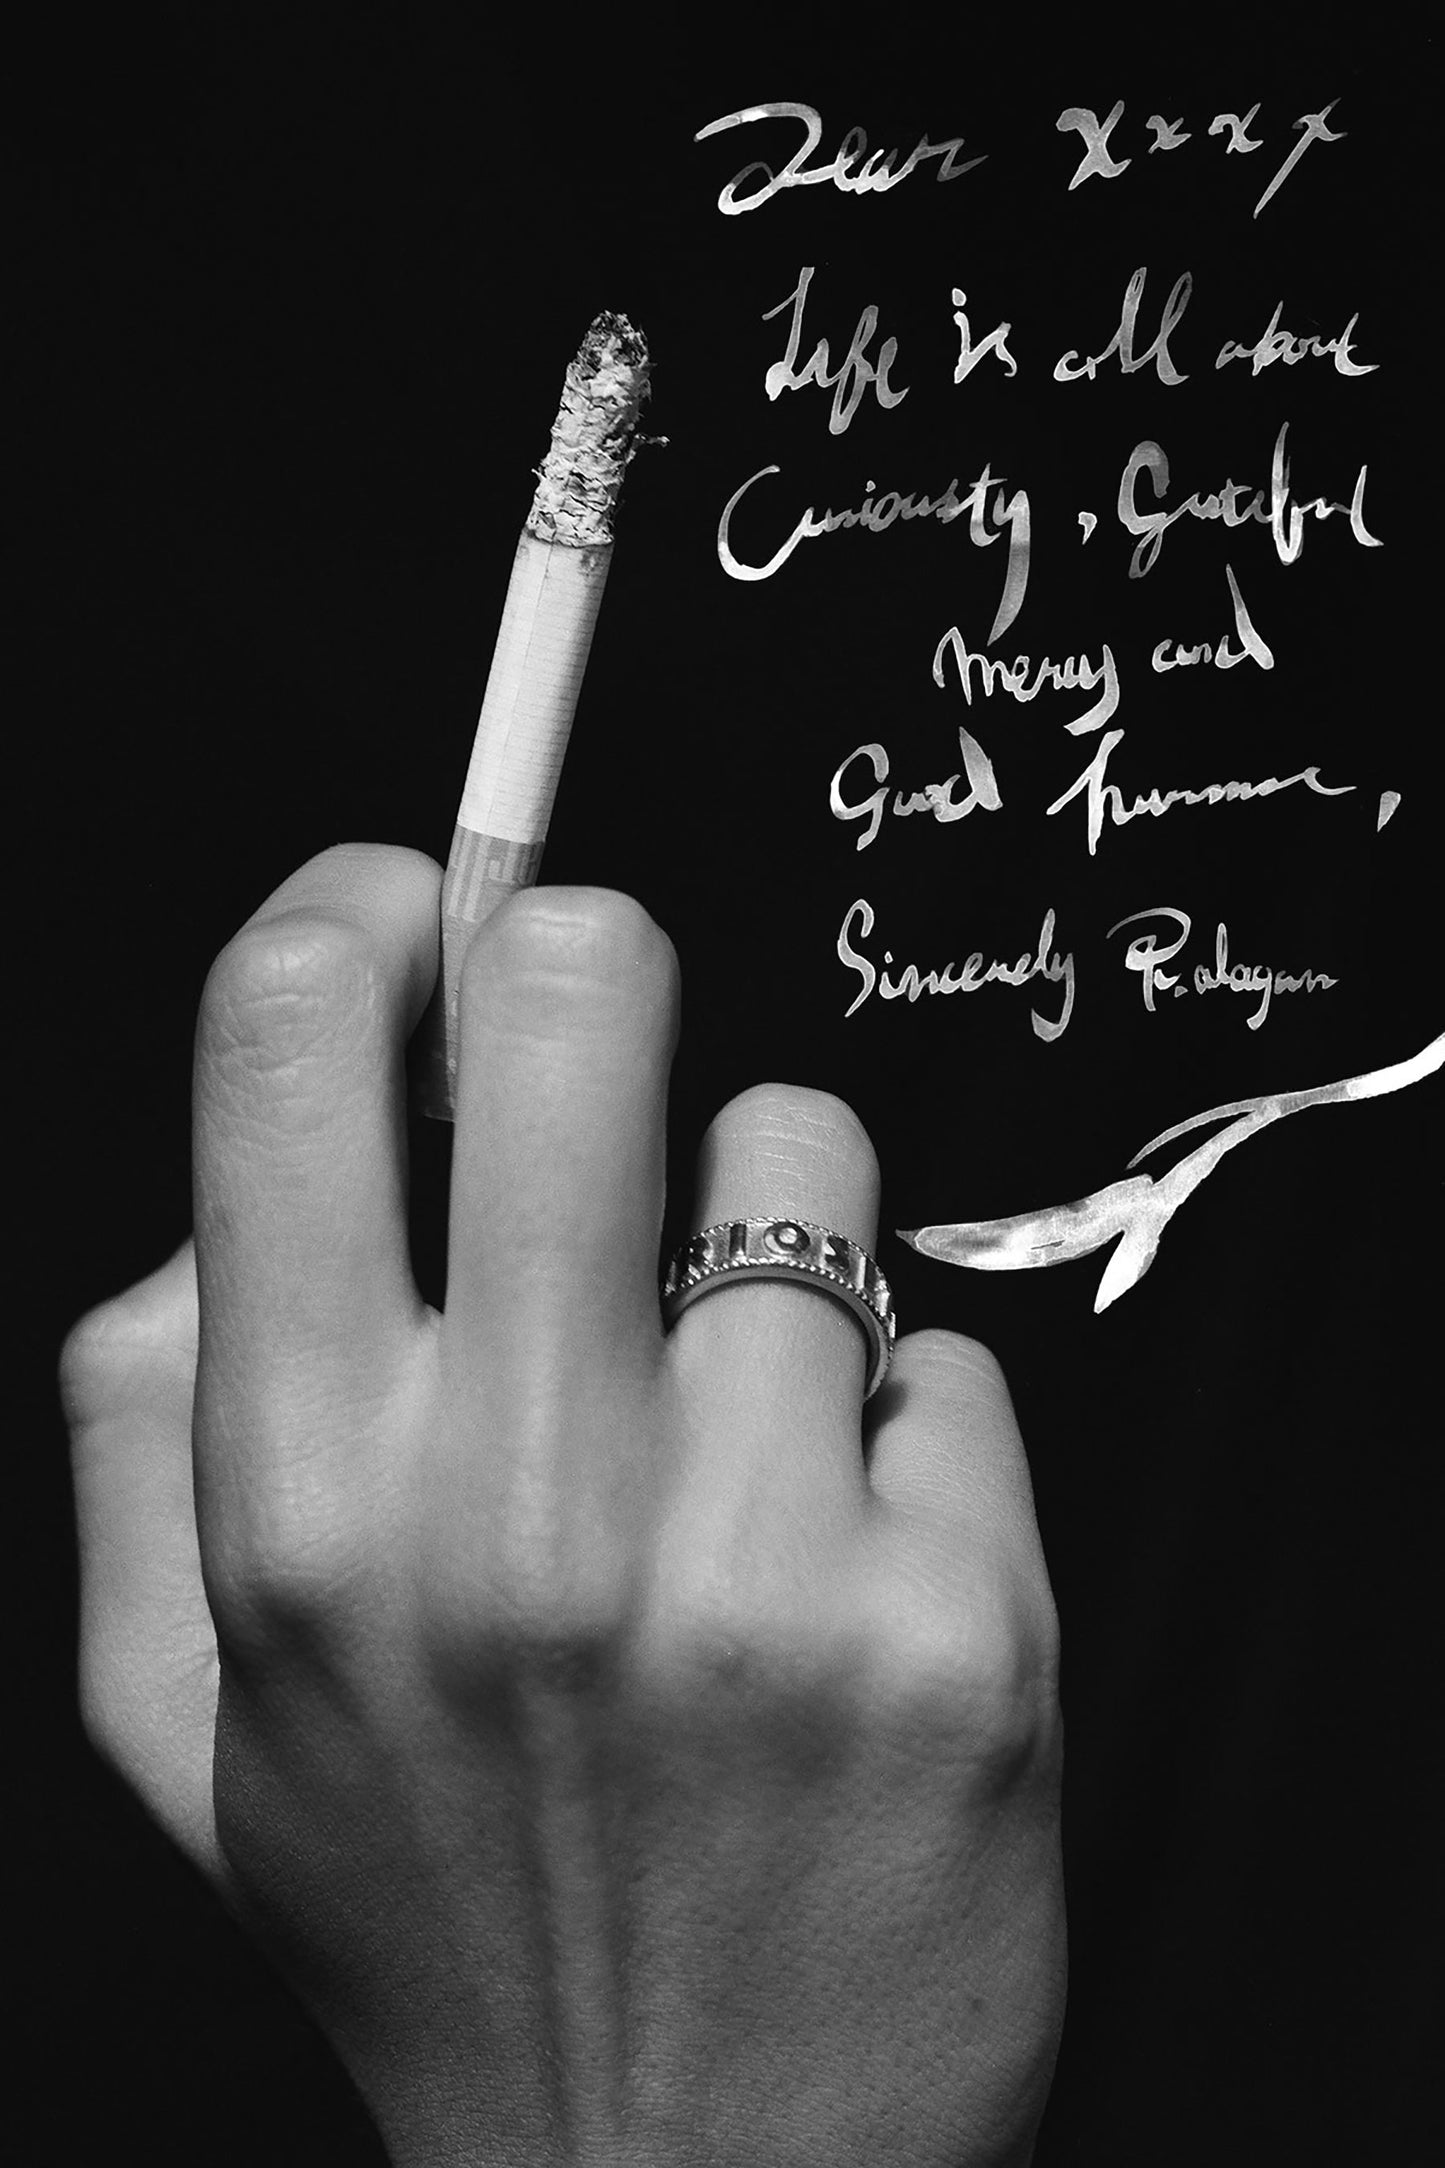 Dear xxxx
Life is all about
Curiousty, Grateful
mercy and
Good humour,
Sincerely